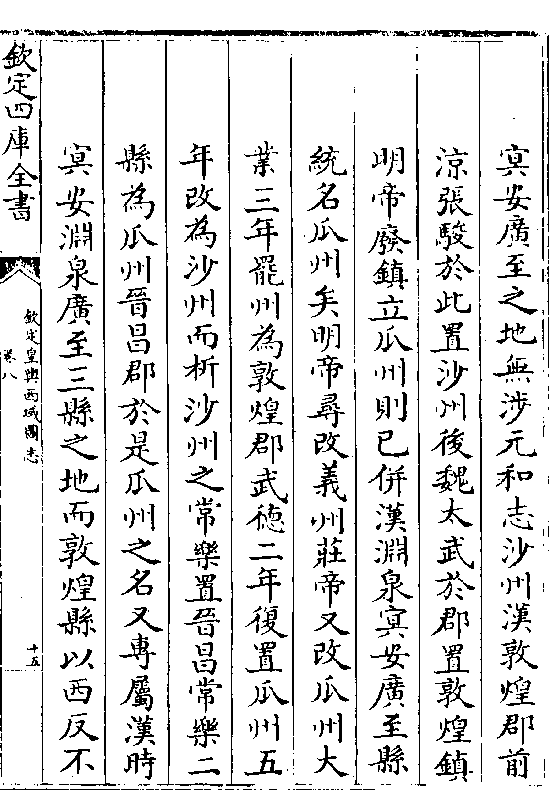 㝠安廣至之地無涉元和志沙州漢敦煌郡前
涼張駿於此置沙州後魏太武於郡置敦煌鎮
明帝廢鎮立瓜州則已併漢淵泉㝠安廣至縣
統名瓜州矣明帝尋改義州莊帝又改瓜州大
業三年罷州為敦煌郡武德二年復置瓜州五
年改為沙州而析沙州之常樂置晉昌常樂二
縣為瓜州晉昌郡於是瓜州之名又專屬漢時
㝠安淵泉廣至三縣之地而敦煌縣以西反不
欽定四庫全書
欽定皇輿西域圖志
卷八
十五